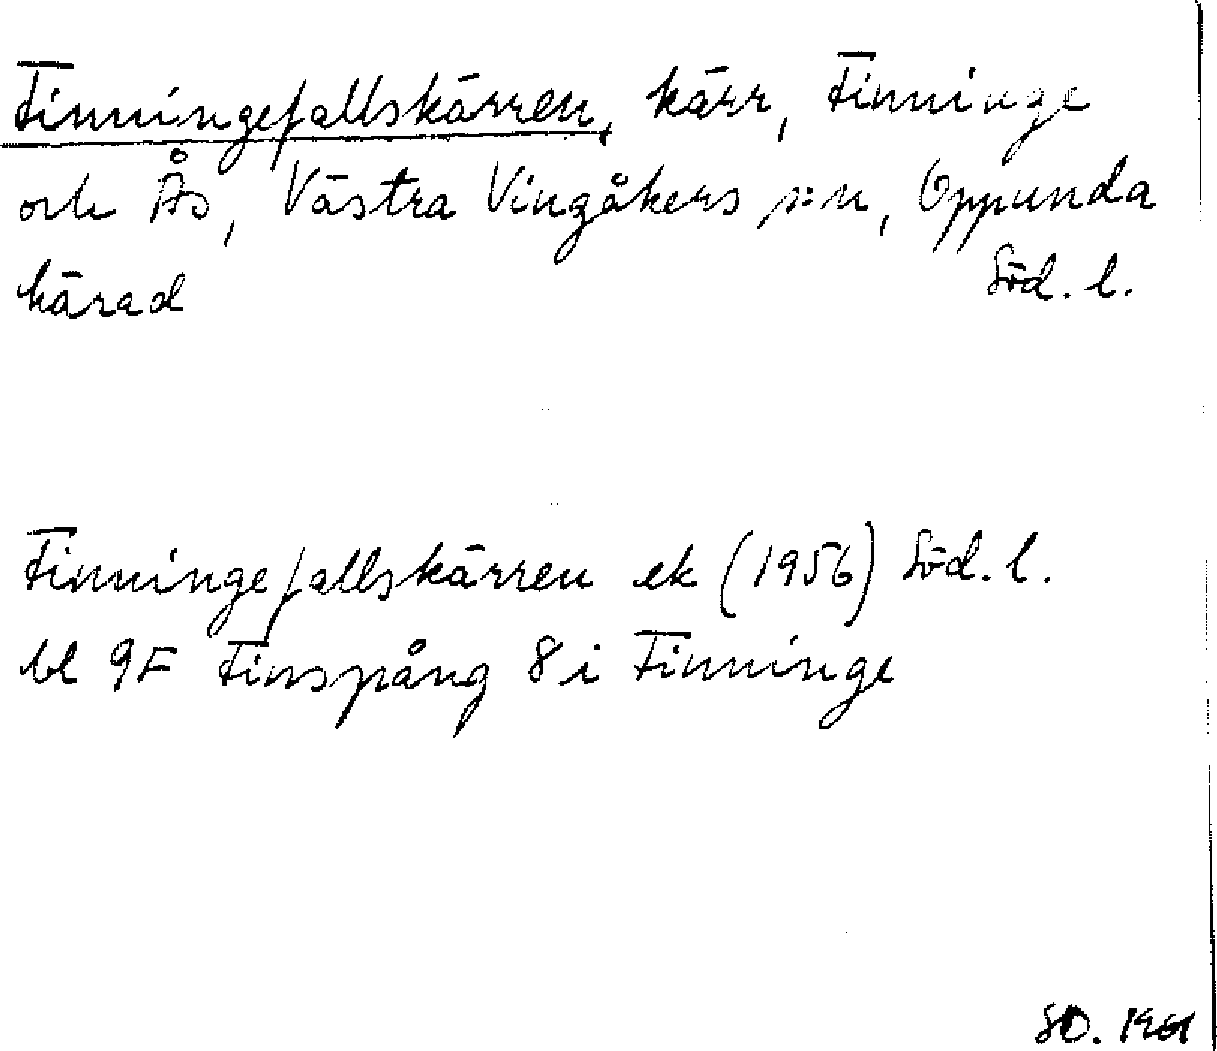 Finningefallskärren, kärr, Finninge
och Ås, Västra Vingåkers s:n, Oppunda
härad Söd. l.
Finningefallskärren ek (1956) Söd. l.
bl 9F Finspång 8i Finninge
SO. 1961